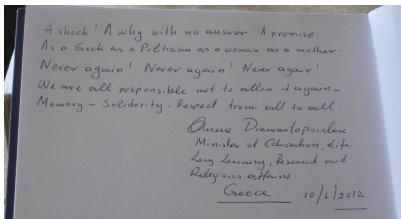 A shock! A why with no answer. A promise:
As a Greek as a Politician as a woman as a mother.
Never again! Never again! Never again!
We are all responsible not to allow it again –
Memory – Solidarity. Respect from all to all.
Diamantopoulou
Minister of Education, Life
Long Learning, Research and
Religious affairs.
Greece 10/2/2012